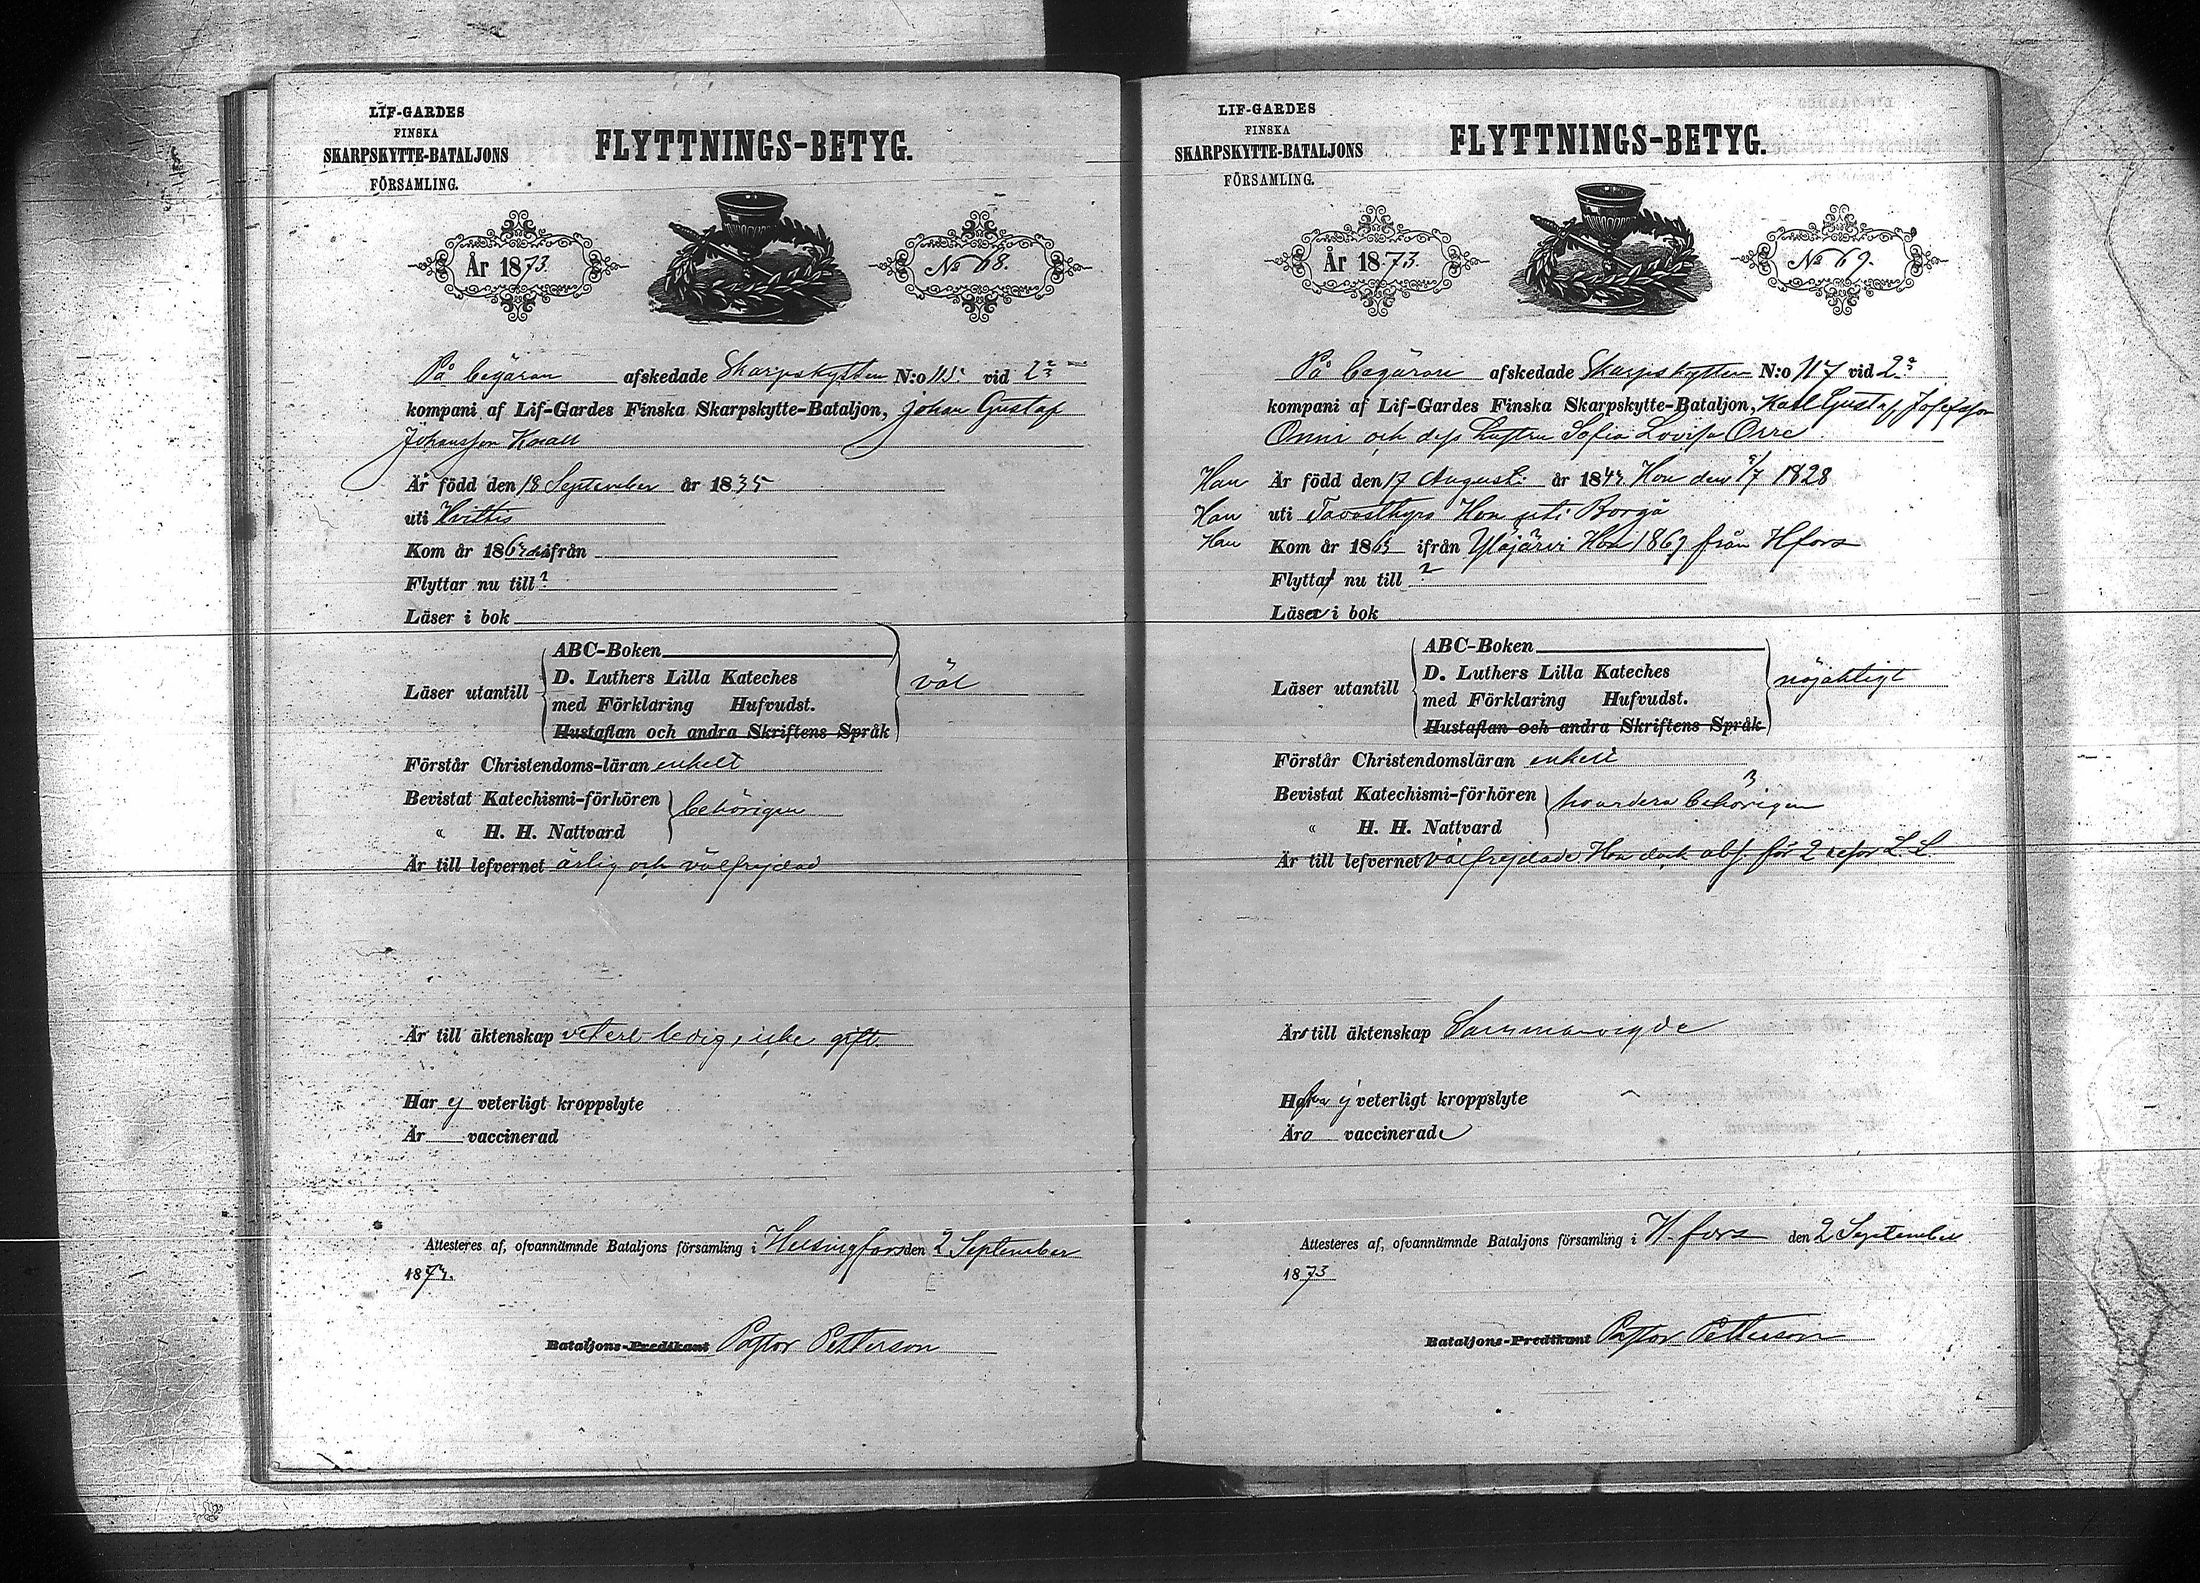 LIF-GARDES
FINSKA
SKARPSKYTTE-BATALJONS
FÖRSAMLING.
FLYTTNINGS-BETYG.
År 1873.
No 68.
På begäran afskedade Skarpskytten N:o 115. vid 2:a
kompani af Lif-Gardes Finska Skarpskytte-Bataljon, Johan Gustaf
Johansson Knall
Är född den 18 September år 1835
uti Hvittis
Kom år 186 ifrån
Flyttar nu till ?
Läser i bok
ABC-Boken
D. Luthers Lilla Kateches
Läser utantill väl
med Förklaring Hufvudst.
Hustaflan och andra Skriftens Språk
Förstår Christendoms-läran enkelt
Bevistat Katechismi-förhören behörigen
" H. H. Nattvard
Är till lefvernet ärlig och välfrejdad
Är till äktenskap veterl. ledig, icke gift.
Har ej veterligt kroppslyte
Är vaccinerad
Attesteres af, ofvannämnde Bataljons församling i Helsingfors den 2 September
1873.
Bataljons-Predikant Pastor Petterson
LIF-GARDES
FINSKA
SKARPSKYTTE-BATALJONS
FÖRSAMLING.
FLYTTNINGS-BETYG.
År 1873.
No 69.
På begäran afskedade Skarpskytten N:o 117 vid 2:a
kompani af Lif-Gardes Finska Skarpskytte-Bataljon, Karl Gustaf Josefsson
Onni och dess hustru Sofia Lovisa Orre
Han Är född den 17 Augusti år 1843 Hon den 9/7 1828
Han uti Tavasthus Hon uti Borgå
Han Kom år 1865 ifrån Ylöjärvi Hon 1869 från Hfors
Flytta nu till ?
Läser i bok
ABC-Boken
D. Luthers Lilla Kateches
Läser utantill nöjaktigt
med Förklaring Hufvudst.
Hustaflan och andra Skriftens Språk
Förstår Christendomsläran enkelt
Bevistat Katechismi-förhören hvardera behörigen
" H. H. Nattvard
Är till lefvernet välfrejdade Hon dock abs. för 2 resor L. L.
Äro till äktenskap Sammanvigde
Hafva ej veterligt kroppslyte
Äro vaccinerade
Attesteres af, ofvannämnde Bataljons församling i H.fors den 2 September
1873
Bataljons-Predikant Pastor Petterson